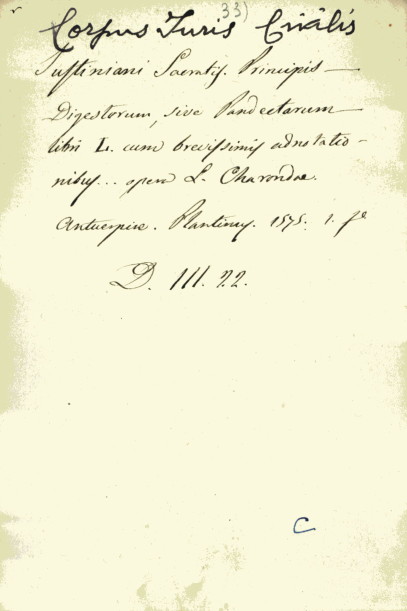 33)
Corpus Juris Civilis
Justiniani Sacratis. Principis —
Digestorum, sive Pandectarum
libri L. cum brevissimis adnotatio-
nibus... opera L. Charondae.
Antuerpiae. Plantinus. 1575. 1. fo
D. III. 22.
C